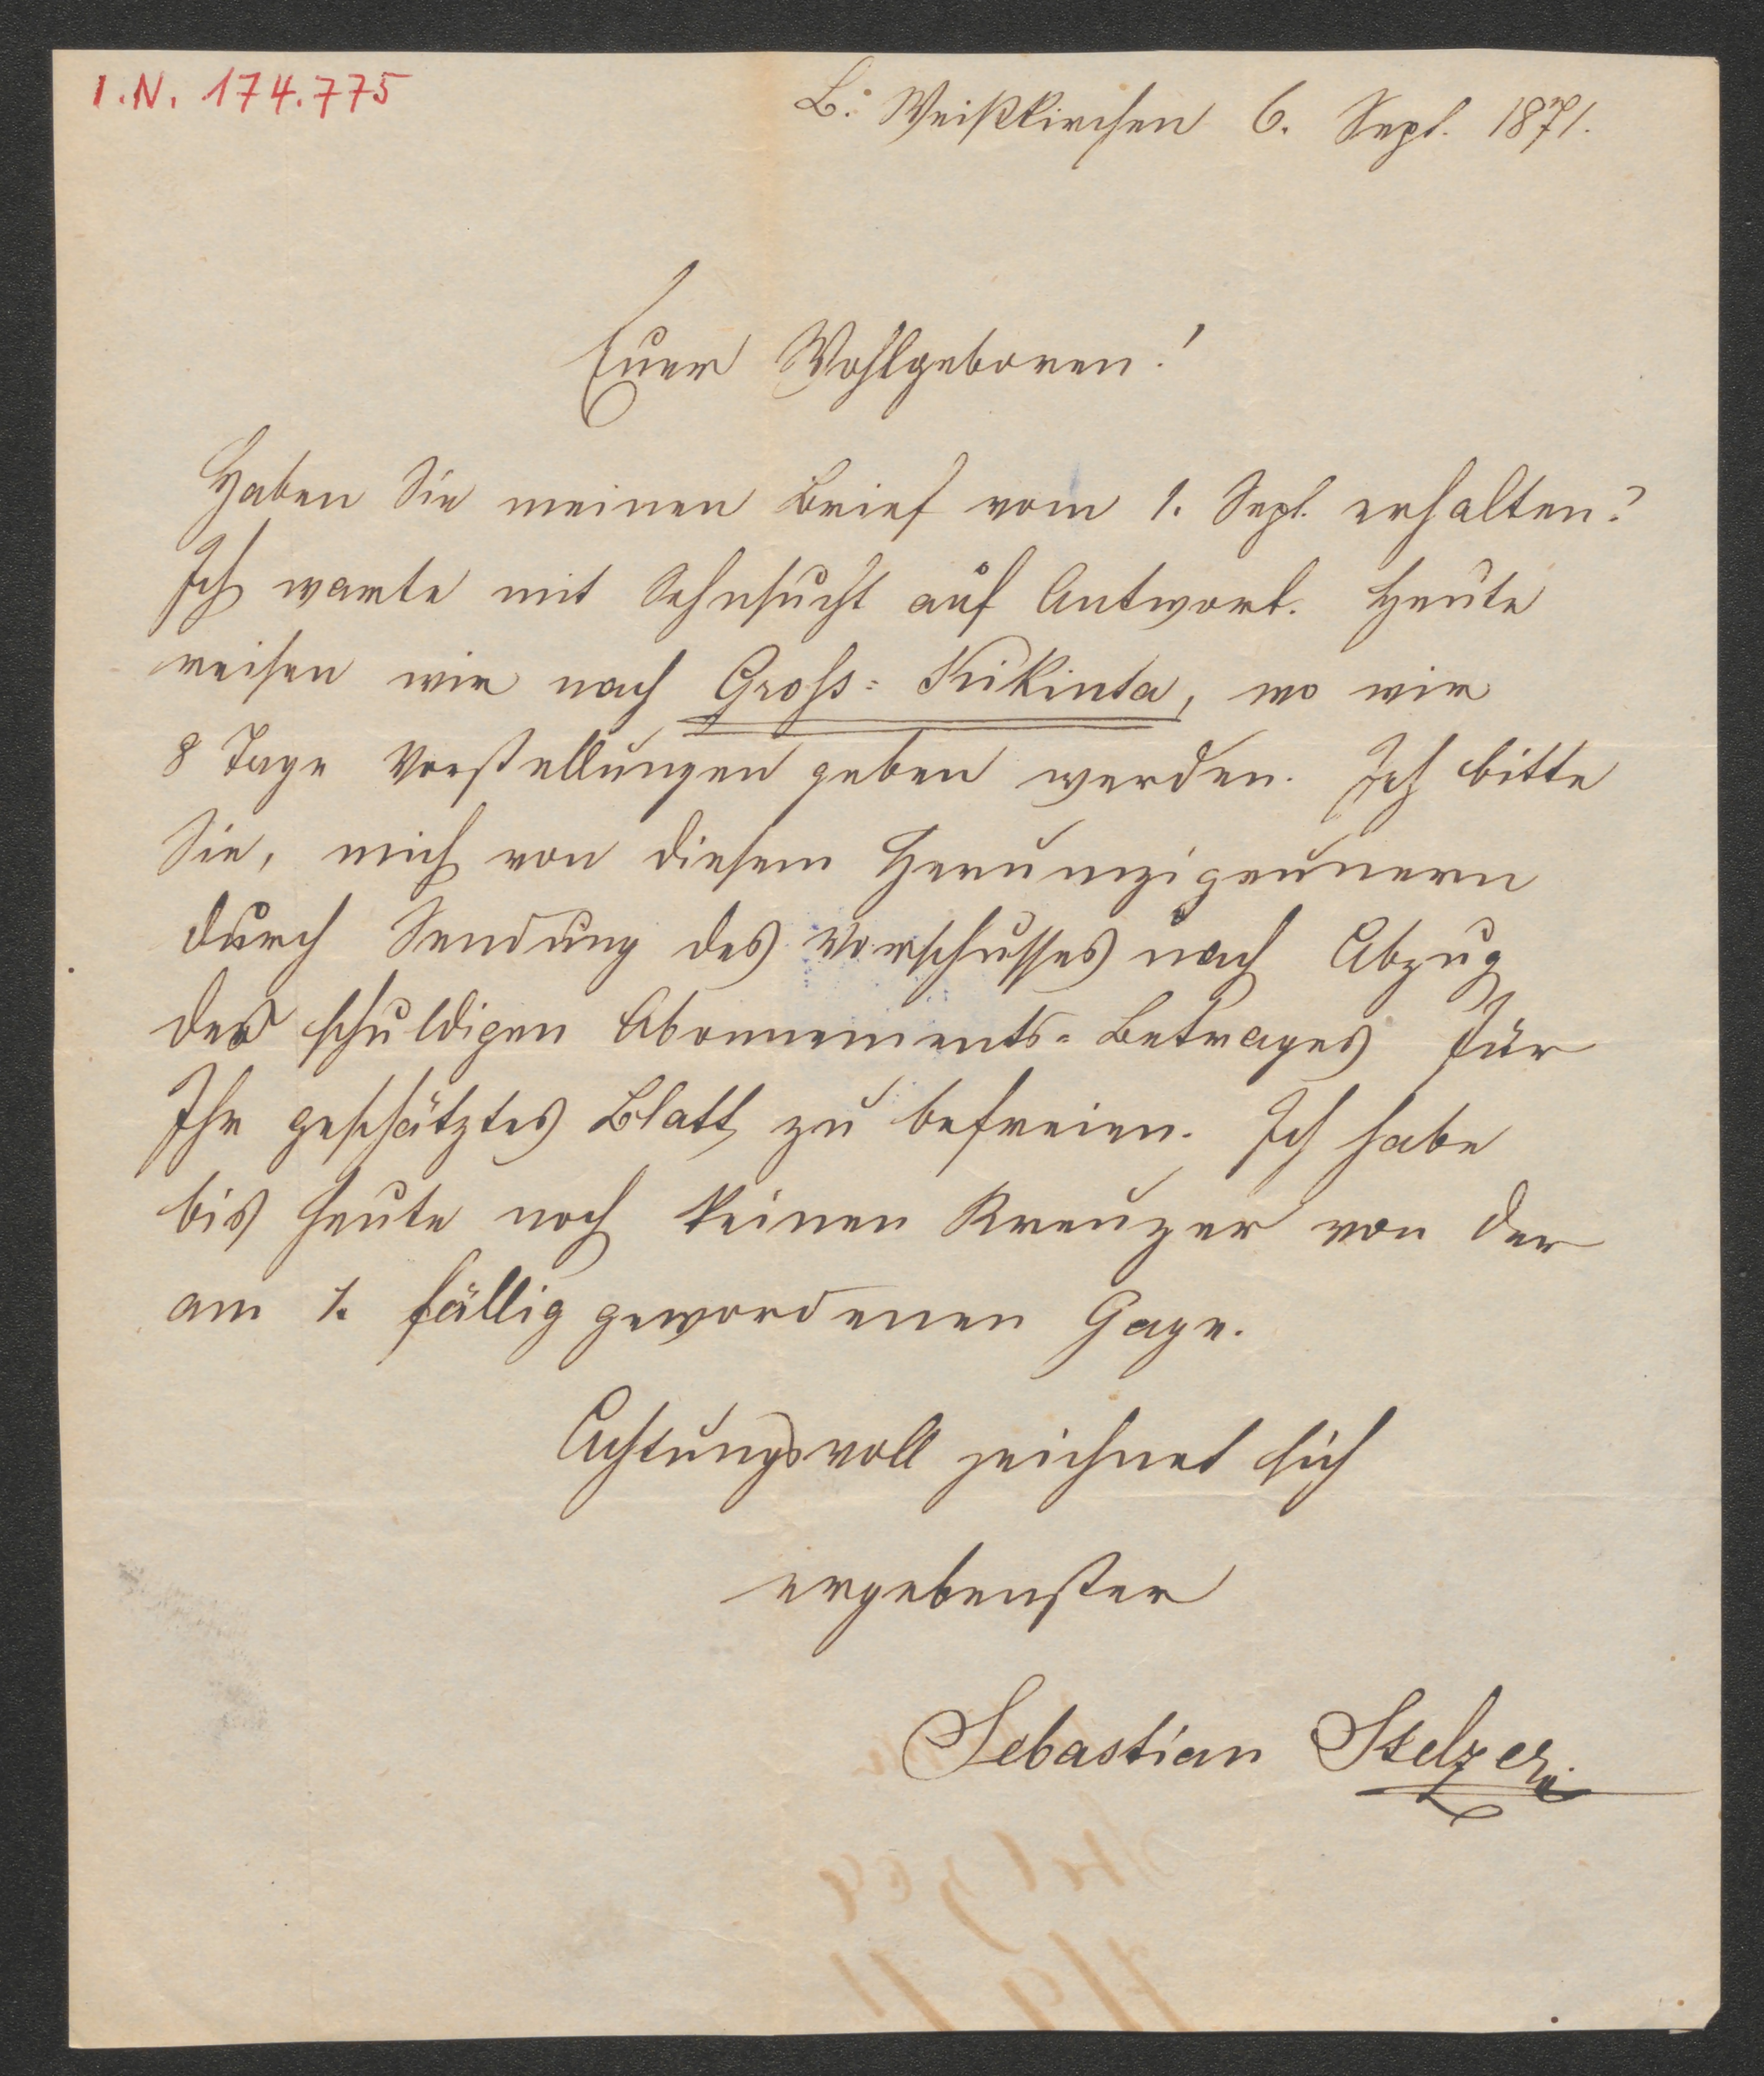 I.N. 174.775
B: Weißkirchen 6. Sept. 1871.
Euer Wohlgeboren!
Haben Sie meinen Brief vom 1. Sept. erhalten?
Ich warte mit Sehnsucht auf Antwort. Heute
reisen wir nach Gross= Kikinta, wo wir
8 Tage Vorstellungen geben werden. Ich bitte
Sie, mich von diesem Herumzigeunern
durch Sendung des Vorschusses nach Abzug
des schuldigen Abonnements=Betrages für
Ihr geschätztes Blatt zu befreien. Ich habe
bis heute noch keinen Kreuzer von der
am 1. fällig gewordenen Gage.
Achtungsvoll zeichnet sich
ergebenster
Sebastian Stelzer